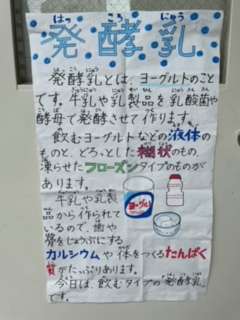 はっ こう にゅう
発酵乳
発酵乳とは、ヨーグルトのこと
です。牛乳や乳製品を乳酸菌や
酵母で発酵させて作ります。
飲むヨーグルトなどの液体の
ものと、どろっとした糊状のもの
凍らせたフローズンタイプのものが
あります。
牛乳や乳製
品から作られて
いるので、歯や
骨をじょうぶにする
カルシウムや体をつくるたんぱく
質がたっぷりあります。
今日は、飲むタイプの発酵乳
です。
ヨーグルト